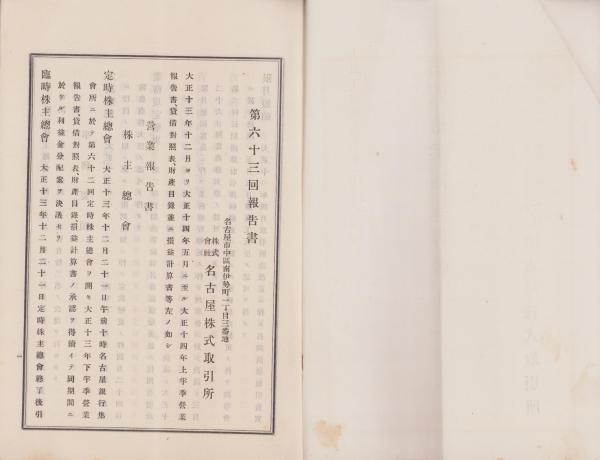 第六十三回報告書
名古屋市中區南伊勢町一丁目三番地
株式會社 名古屋株式取引所
大正十三年十二月ヨリ大正十四年五月ニ至ル大正十四年上半季營業
報告書、貸借對照表、財產目錄並ニ損益計算書等左ノ如シ
營業報告書
株主總會
定時株主總會 大正十三年十二月二十一日午前十時名古屋銀行集
會所ニ於テ第六十二回定時株主總會ヲ開キ大正十三年下半季營業
報告書、貸借對照表、財產目錄、損益計算書ノ承認ヲ得續イテ同期間ニ
於ケル利益金分配案ヲ決議セリ
臨時株主總會 大正十三年十二月二十一日定時株主總會終了後引